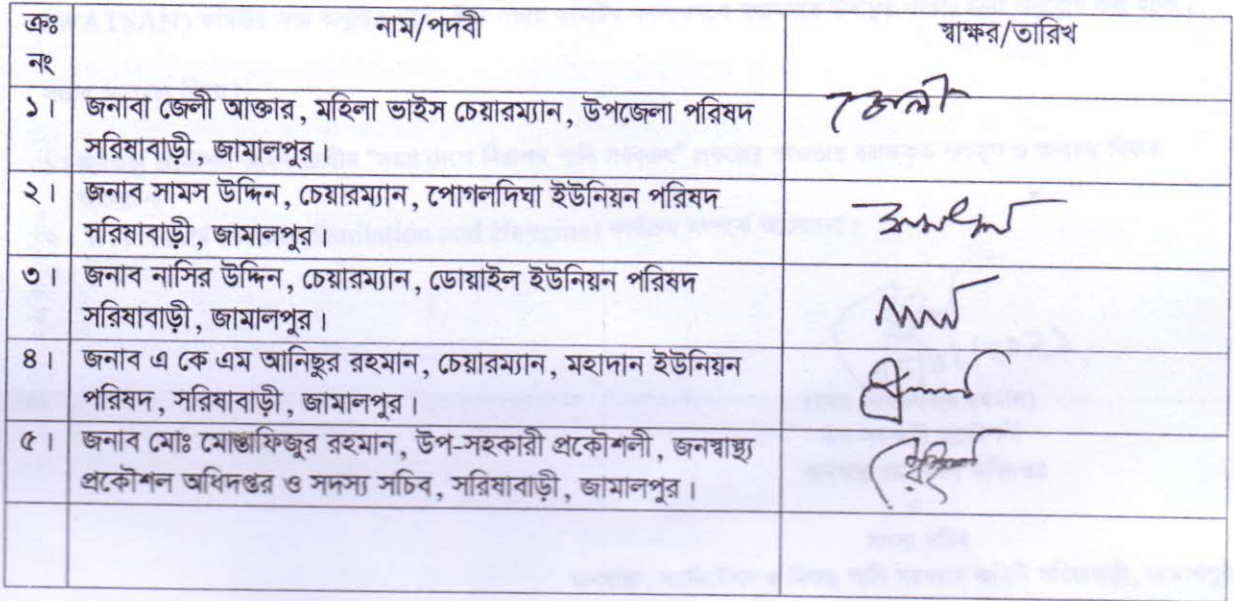 ক্রঃ নাম/পদবী স্বাক্ষর/তারিখ
নং
১। জনাবা জেলী আক্তার, মহিলা ভাইস চেয়ারম্যান, উপজেলা পরিষদ জেলী
সরিষাবাড়ী, জামালপুর।
২। জনাব সামস উদ্দিন, চেয়ারম্যান, পোগলদিঘা ইউনিয়ন পরিষদ
সরিষাবাড়ী, জামালপুর।
৩। জনাব নাসির উদ্দিন, চেয়ারম্যান, ডোয়াইল ইউনিয়ন পরিষদ
সরিষাবাড়ী, জামালপুর।
৪। জনাব এ কে এম আনিছুর রহমান, চেয়ারম্যান, মহাদান ইউনিয়ন
পরিষদ, সরিষাবাড়ী, জামালপুর।
৫। জনাব মোঃ মোস্তাফিজুর রহমান, উপ-সহকারী প্রকৌশলী, জনস্বাস্থ্য
প্রকৌশল অধিদপ্তর ও সদস্য সচিব, সরিষাবাড়ী, জামালপুর।